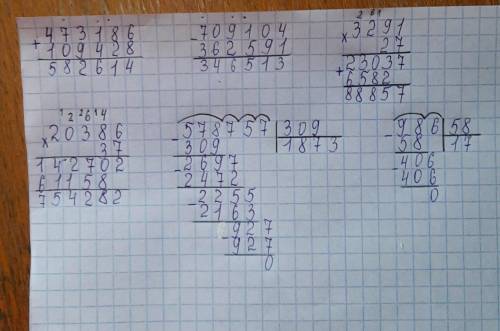 473186
+
109428
582614
-709104
362591
346513
2 6
×3291
27
23037
+
6582
88857
1 2 6 4
×20386
37
142702
61158
754282
-578757 309
309 1873
-2697
2472
-2255
2163
-927
927
0
-986 58
58 17
-406
406
0